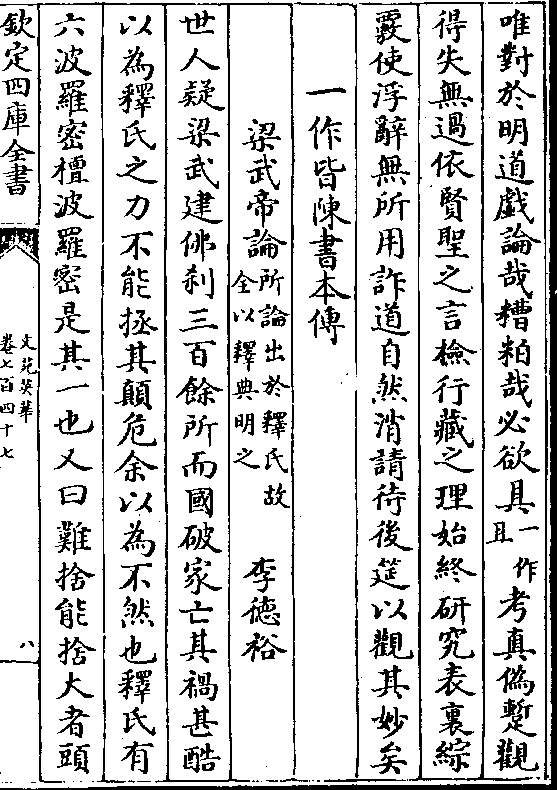 唯對於明道戲論哉糟粕哉必欲具一作且考真偽蹔觀
得失無過依賢聖之言檢行藏之理始終研究表裏綜
覈使浮辭無所用詐道自然消請待後筵以觀其妙矣
一作皆陳書本傳
梁武帝論所論出於釋氏故全以釋典明之 李德裕
世人疑梁武建佛刹三百餘所而國破家亡其禍甚酷
以為釋氏之力不能拯其顛危余以為不然也釋氏有
六波羅密檀波羅密是其一也又曰難捨能捨大者頭
欽定四庫全書
文苑英華
卷七百四十七
八